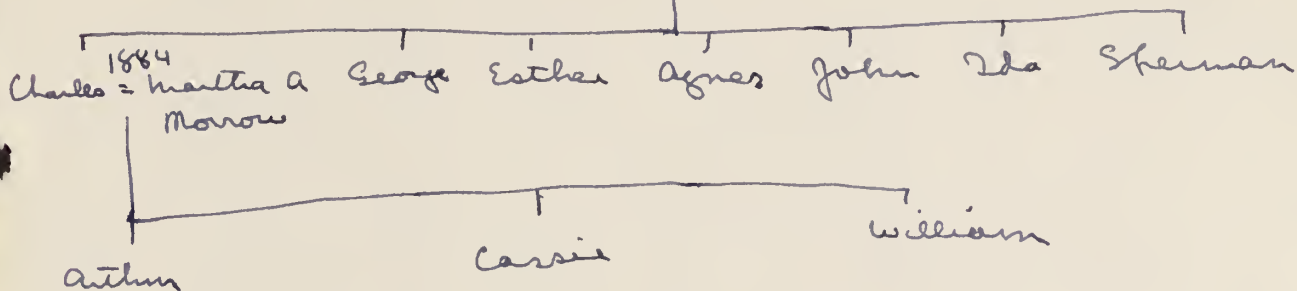 1884
Charles = Martha A George Esther Agnes John Ida Sherman
Morrow
Arthur Cassie William